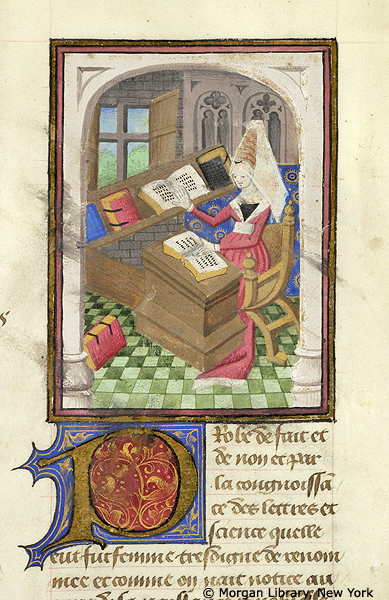 Probe de fait et
de non et par
la congnoissā
ce des lettres et
science quelle
eut fut femme tresdigne de renom
mee et comme on nait notice au
© Morgan Library, New York